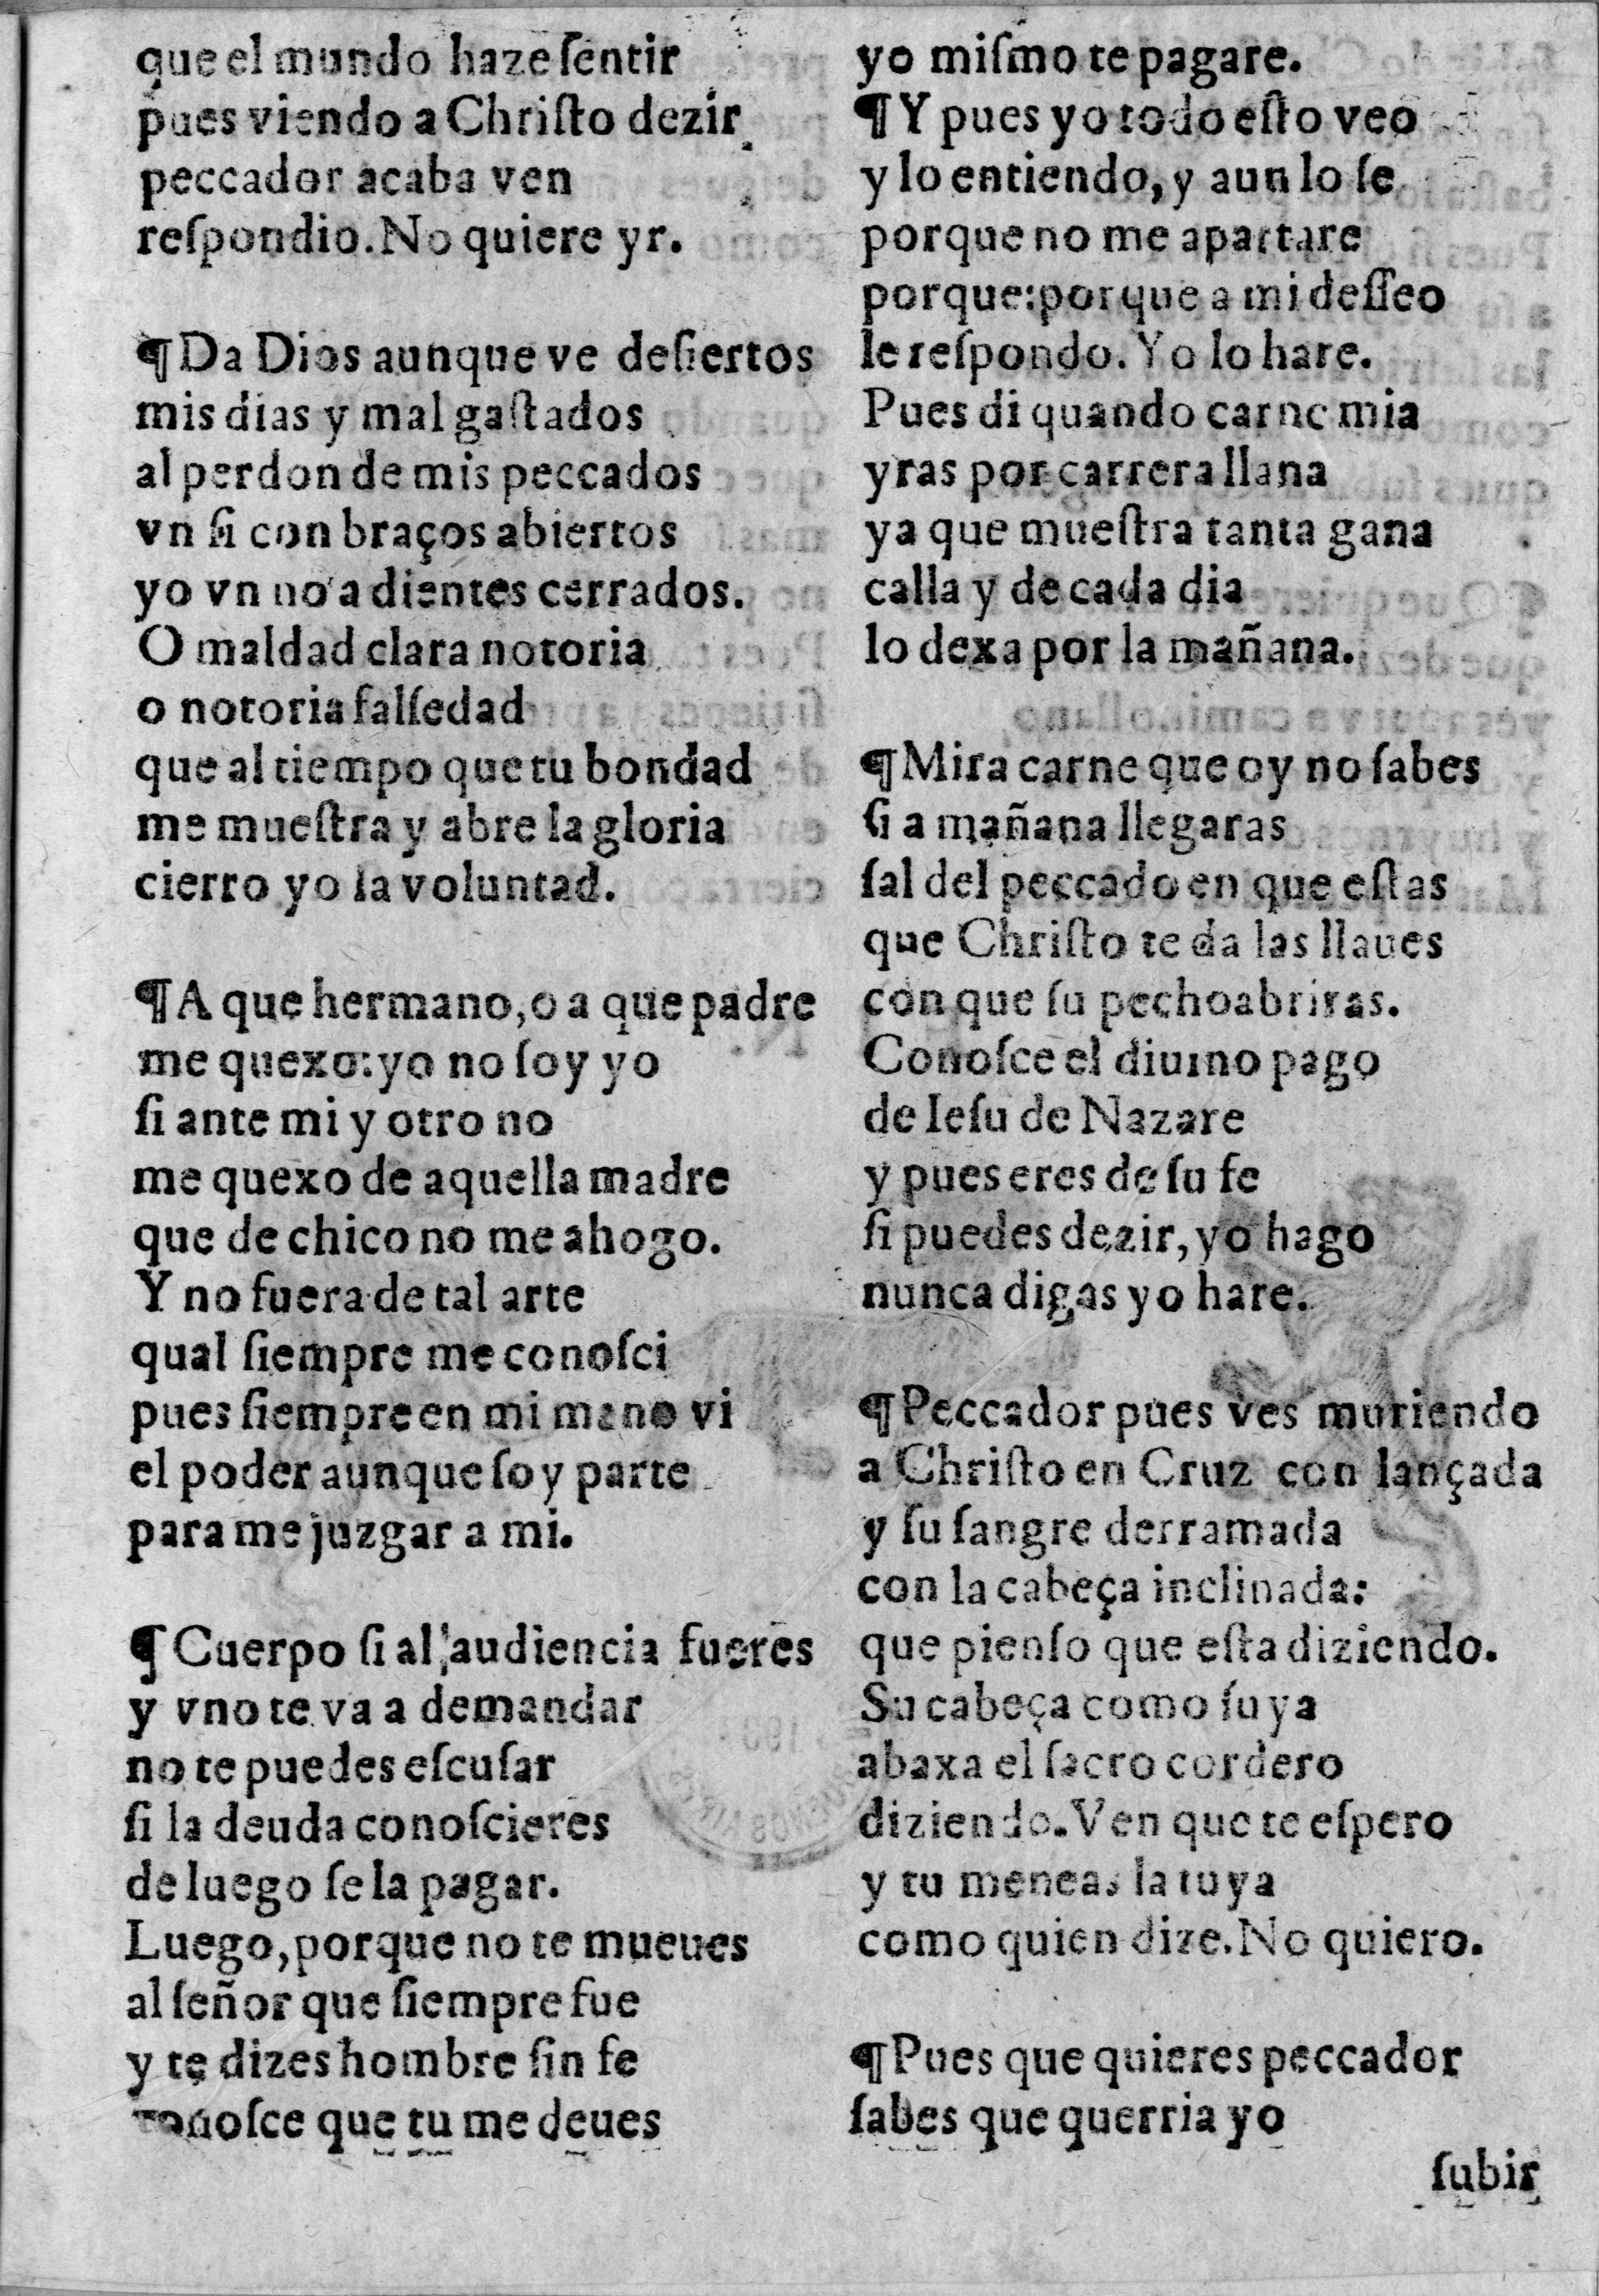 que el mundo haze ſentir
pues viendo a Chriſto dezir
peccador acaba ven
reſpondio. No quiere yr.
¶ Da Dios aunque ve deſiertos
mis dias y mal gaſtados
al perdon de mis peccados
vn ſi con braços abiertos
yo vn no a dientes cerrados.
O maldad clara notoria
o notoria falſedad
que al tiempo que tu bondad
me mueſtra y abre la gloria
cierro yo la voluntad.
¶ A que hermano, o a que padre
me quexo: yo no ſoy yo
ſi ante mi y otro no
me quexo de aquella madre
que de chico no me ahogo.
Y no fuera de tal arte
qual ſiempre me conoſci
pues ſiempre en mi mano vi
el poder aunque ſoy parte
para me juzgar a mi.
¶ Cuerpo ſi al audiencia fueres
y vno te va a demandar
no te puedes eſcuſar
ſi la deuda conoſcieres
de luego ſe la pagar.
Luego, porque no te mueues
al ſeñor que ſiempre fue
y te dizes hombre ſin fe
conoſce que tu me deues
yo miſmo te pagare.
¶ Y pues yo todo eſto veo
y lo entiendo, y aun lo ſe
porque no me apartare
porque: porque a mi deſſeo
le reſpondo. Yo lo hare.
Pues di quando carne mia
yras por carrera llana
ya que mueſtra tanta gana
calla y de cada dia
lo dexa por la mañana.
¶ Mira carne que oy no ſabes
ſi a mañana llegaras
ſal del peccado en que eſtas
que Chriſto te da las llaues
con que ſu pecho abriras.
Conoſce el diuino pago
de Ieſu de Nazare
y pues eres de ſu fe
ſi puedes dezir, yo hago
nunca digas yo hare.
¶ Peccador pues ves muriendo
a Chriſto en Cruz con lançada
y ſu ſangre derramada
con la cabeça inclinada:
que pienſo que eſta diziendo.
Su cabeça como ſuya
abaxa el ſacro cordero
diziendo. Ven que te eſpero
y tu meneas la tuya
como quien dize. No quiero.
¶ Pues que quieres peccador
ſabes que querria yo
ſubir